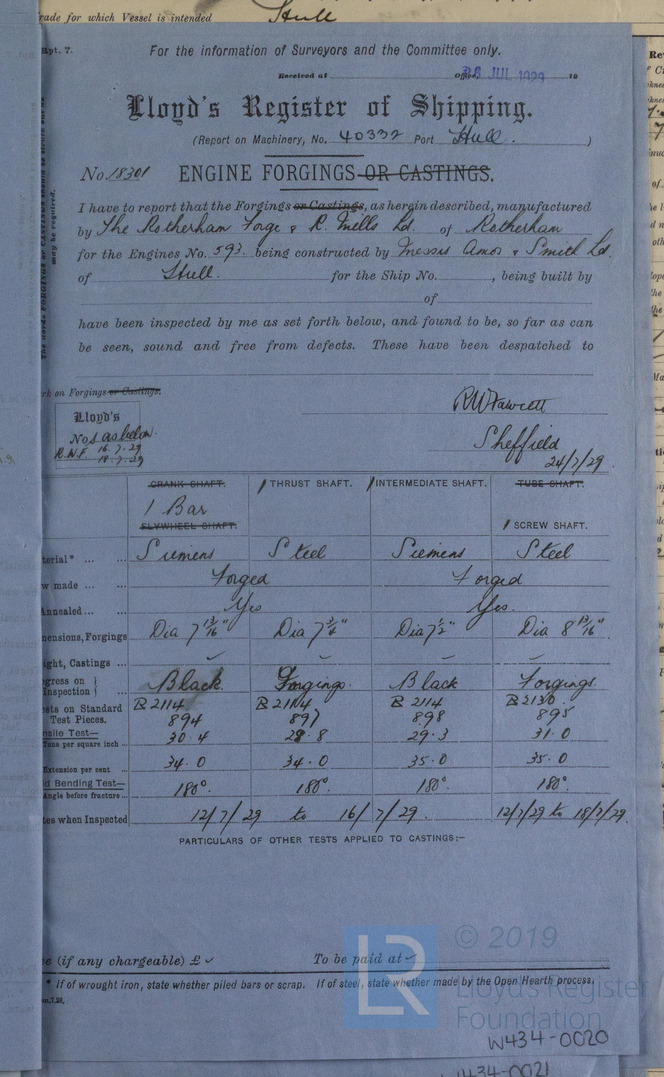 rade for which Vessel is intended Hull
Rpt. 7.
For the information of Surveyors and the Committee only.
Received at Office, JUL 1929 19
Lloyd's Register of Shipping.
(Report on Machinery, No. 40332 Port Hull. )
No. 18301 ENGINE FORGINGS OR CASTINGS.
I have to report that the Forgings or Castings, as herein described, manufactured
by The Rotherham Forge & R. Mills Ld. of Rotherham
for the Engines No. 593. being constructed by Messrs Amos & Smith Ld.
of Hull. for the Ship No. , being built by
of
have been inspected by me as set forth below, and found to be, so far as can
be seen, sound and free from defects. These have been despatched to
The words FORGINGS or CASTINGS should be struck out as
may be required.
rk on Forgings or Castings.
R W Fawcett
Lloyd's
Nos as below.
R.W.F. 16.7.29
18.7.29
Sheffield
24/7/29.
CRANK SHAFT. 1 THRUST SHAFT. 1 INTERMEDIATE SHAFT. TUBE SHAFT.
1 Bar
FLYWHEEL SHAFT. 1 SCREW SHAFT.
terial* ... ... Siemens Steel Siemens Steel
w made ... ... Forged Forged
Annealed ... ... Yes Yes.
mensions, Forgings Dia 7 13/16" Dia 7 3/4" Dia 7 1/2" Dia 8 13/16"
ight, Castings ... ✓ ✓ ✓ ✓
gress on } Inspection } ... Black Forgings. Black Forgings.
sts on Standard B 2114 B 2114 B 2114 B 2130.
Test Pieces. 894 897 898 895
nsile Test—
Tons per square inch ... 30.4 28.8 29.3 31.0
Extension per cent ... 34.0 34.0 35.0 35.0
d Bending Test—
Angle before fracture ... 180°. 180°. 180°. 180°.
tes when Inspected 12/7/29 to 16/7/29. 12/7/29 to 18/7/29.
PARTICULARS OF OTHER TESTS APPLIED TO CASTINGS:–
e (if any chargeable) £ ✓ To be paid at ✓
* If of wrought iron, state whether piled bars or scrap. If of steel, state whether made by the Open Hearth process.
© 2019
LR
Lloyd's Register
Foundation
W434-0020
W434-0021